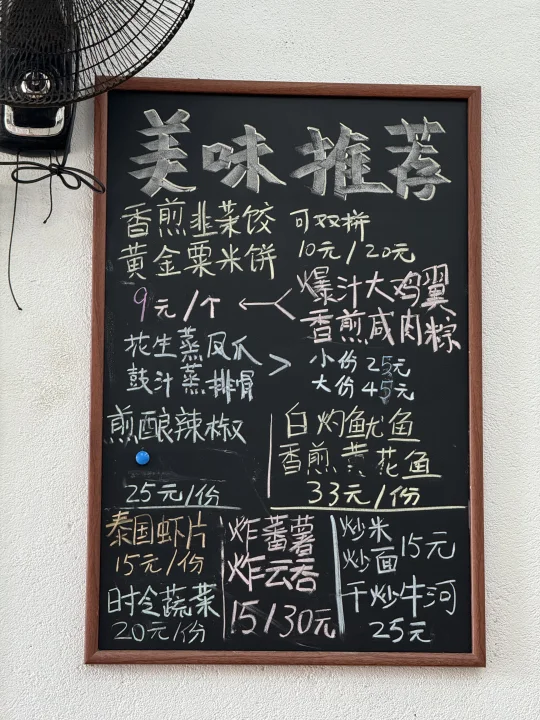 美味推荐
香煎韭菜饺 可双拼
黄金粟米饼 10元/20元
爆汁大鸡翼
9元/个
香煎咸肉粽
花生蒸凤爪 小份25元
鼓汁蒸排骨 大份45元
煎酿辣椒
25元/份
白灼鱿鱼
香煎黄花鱼
33元/份
泰国虾片
15元/份
时令蔬菜
20元/份
炸蕃薯
炸云吞
15/30元
炒米
炒面 15元
干炒牛河
25元